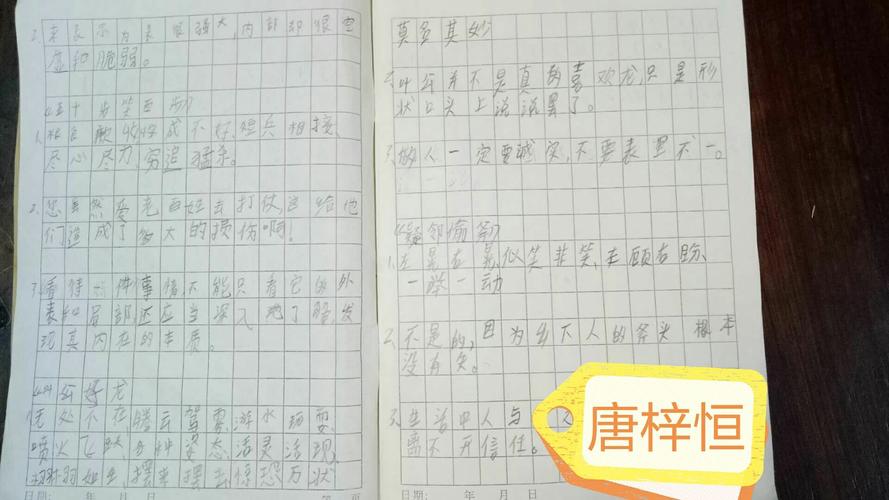 来表示为表很强大,内部却很空
虚和脆弱。
《五十步笑百步》
1、收成不好,短兵相接、
尽心尽力、穷追猛杀。
2、您虽然爱老百姓去打仗,这给他
们造成了多大的损伤啊!
3、看待一件事情不能只看它的外
表和局部,还应当深入地了解,发
现其内在的本质。
公好龙
无处不在、腾云驾雾、游水玩耍、
喷火飞跃、各种姿态、活灵活现、
栩栩如生、摆来摆去、惊恐万状
日期: 年 月 日
莫名其妙
2、叶公并不是真的喜欢龙,只是形
状口头上说说罢了。
3、做人一定要诚实,不要表里不一。
《疑邻偷斧》
1、左晃右晃、似笑非笑、左顾右盼、
一举一动
2、不是的,因为乡下人的斧头根本
没有失。
3、生活中人与人
离不开信任。
日期: 年 月 日
唐梓恒